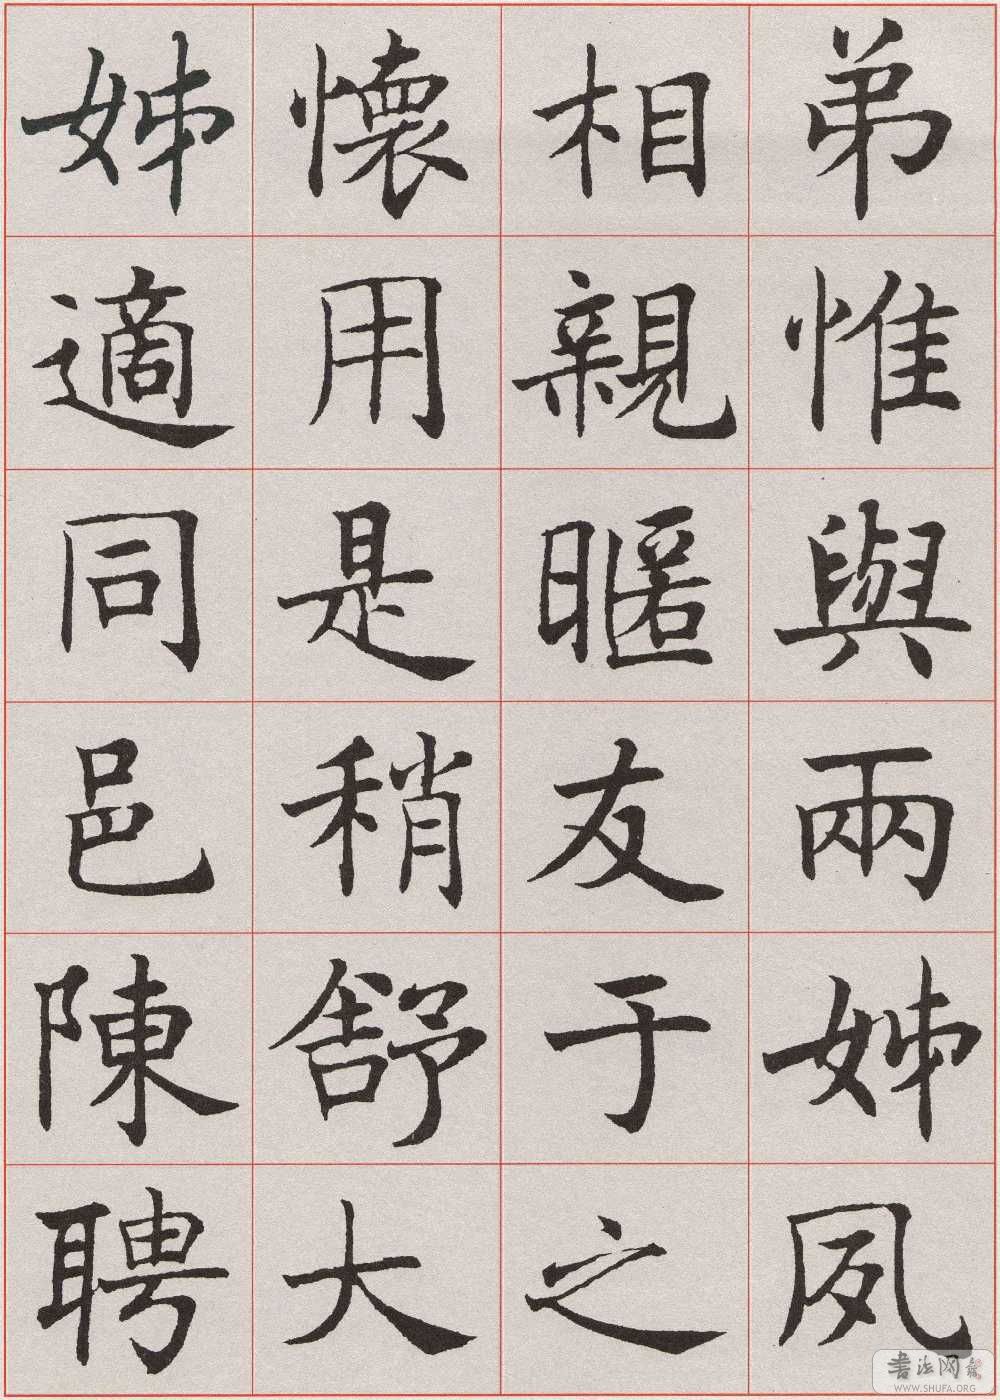 弟惟與兩姊夙
相親暱友于之
懷用是稍舒大
姊適同邑陳聘
書法网
WWW.SHUFA.ORG